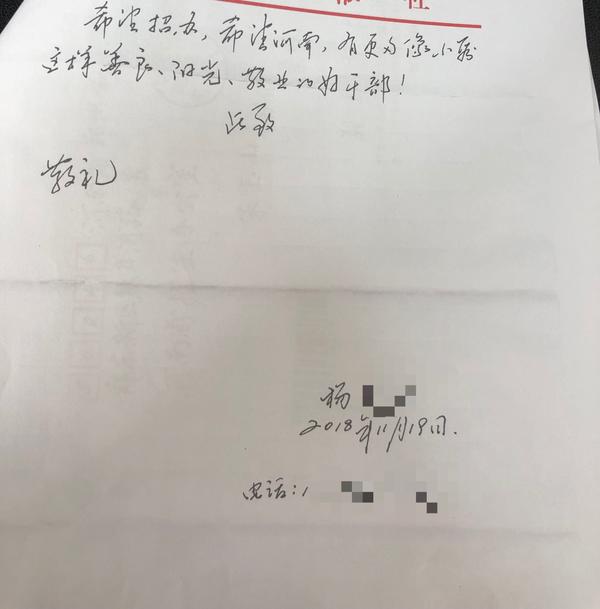 社
希望招办，希望河南，有更多像小
这样善良、阳光、敬业的好干部！
此致
敬礼
杨
2018年11月19日.
电话：1